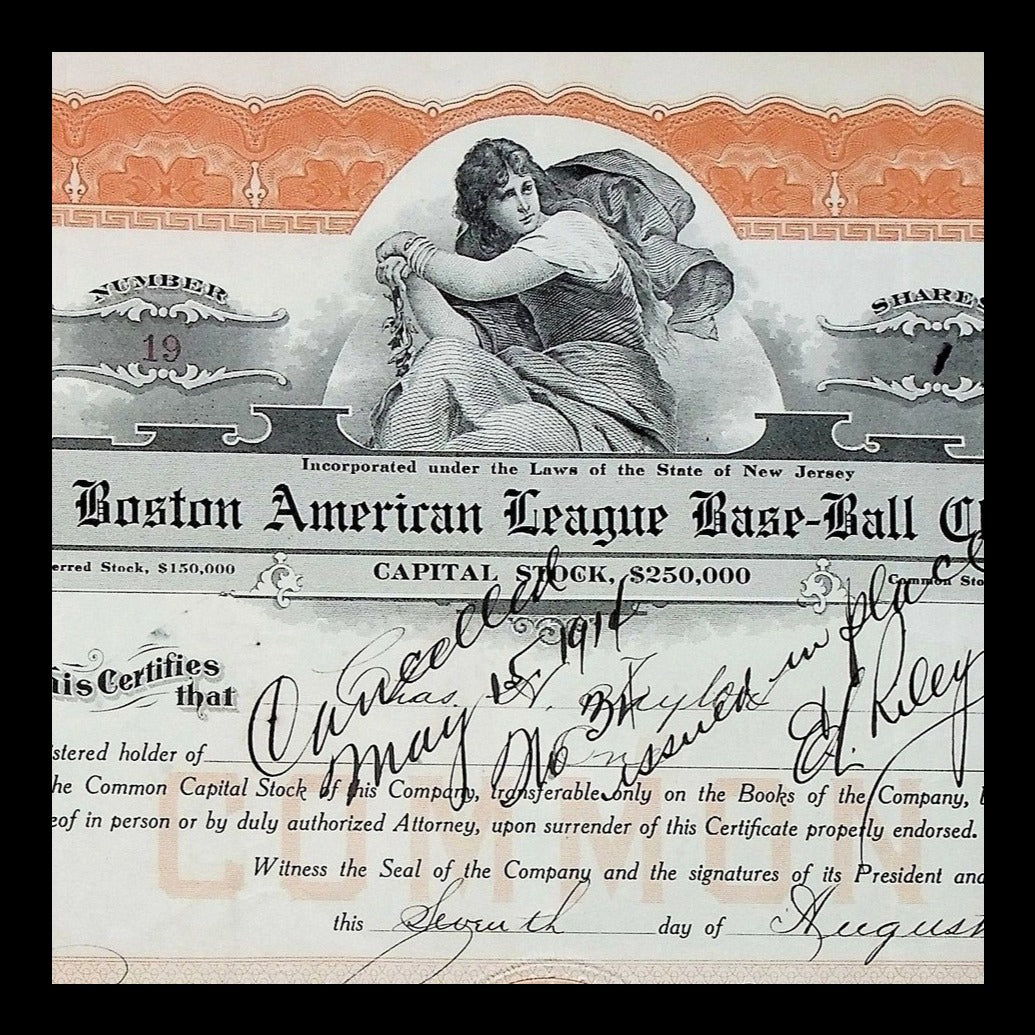 NUMBER
19
SHARES
1
Incorporated under the Laws of the State of New Jersey
Boston American League Base-Ball Cl
erred Stock, $150,000
CAPITAL STOCK, $250,000
Common Sto
Cancelled
May 15, 1914
No 31 issued in place
E. Riley
his Certifies
that
Chas. H. Taylor
istered holder of
One
he Common Capital Stock of this Company, transferable only on the Books of the Company,
eof in person or by duly authorized Attorney, upon surrender of this Certificate properly endorsed.
COMMON
Witness the Seal of the Company and the signatures of its President and
this Seventh day of August